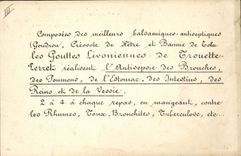 III
Composées des meilleurs balsamiques-antiseptiques
(Goudron, Créosote de Hêtre et Baume de Tolu
les Gouttes Livoniennes de Trouette-
Perret réalisent l'Antisepsie des Bronches,
des Poumons, de l'Estomac, des Intestins, des
Reins et de la Vessie.
2 à 4 à chaque repas, en mangeant, contre
les Rhumes, Toux, Bronchites, Tuberculose, etc.